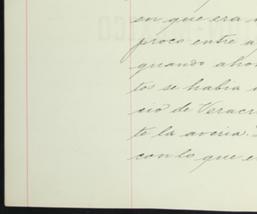 en que era
proco entre a
quando aho
tos se habia
cio de Verac
te la averia.
con lo que e